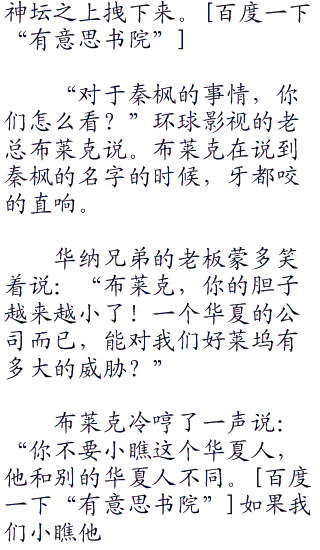 神坛之上拽下来。[百度一下
“有意思书院”]
“对于秦枫的事情，你
们怎么看？”环球影视的老
总布莱克说。布莱克在说到
秦枫的名字的时候，牙都咬
的直响。
华纳兄弟的老板蒙多笑
着说：“布莱克，你的胆子
越来越小了！一个华夏的公
司而已，能对我们好莱坞有
多大的威胁？”
布莱克冷哼了一声说：
“你不要小瞧这个华夏人，
他和别的华夏人不同。[百度
一下“有意思书院”]如果我
们小瞧他